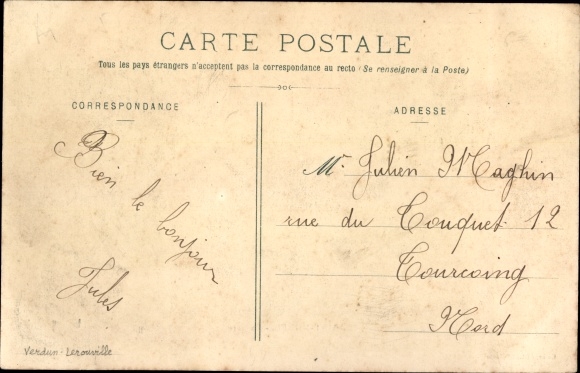 CARTE POSTALE
Tous les pays étrangers n'acceptent pas la correspondance au recto (Se renseigner à la Poste)
CORRESPONDANCE
Bien le bonjour
Jules
Verdun-Lerouville
ADRESSE
Mr Julien Maghin
rue du Touquet 12
Tourcoing
Nord